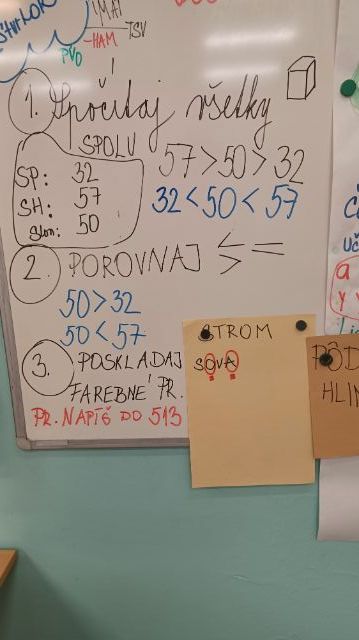 HAM
TSV
PVO
1. Spočítaj všetky
SPOLU
SP: 32
SH: 57
Slon: 50
57 > 50 > 32
32 < 50 < 57
2. POROVNAJ < > =
50 > 32
50 < 57
3. POSKLADAJ
FAREBNÉ PR.
PR. NAPÍŠ DO 513
STROM
SOVA
HLIN